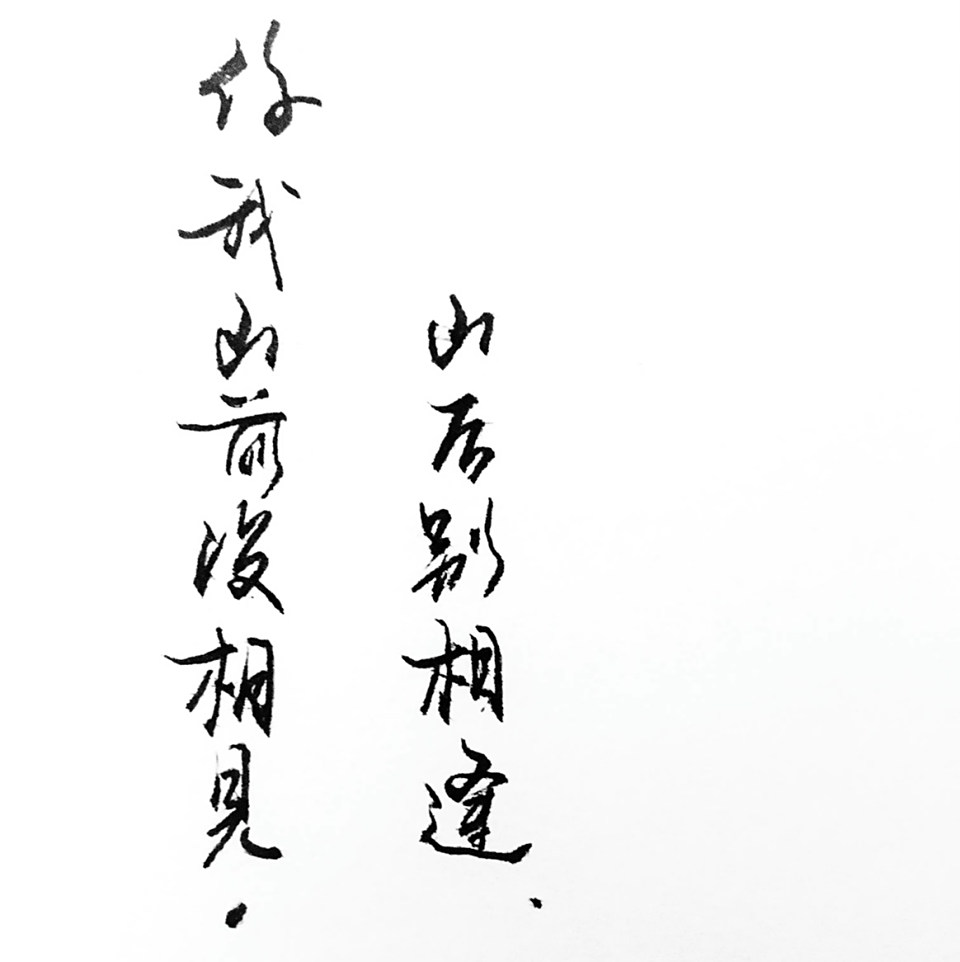 你我山前没相見.
山后别相逢.